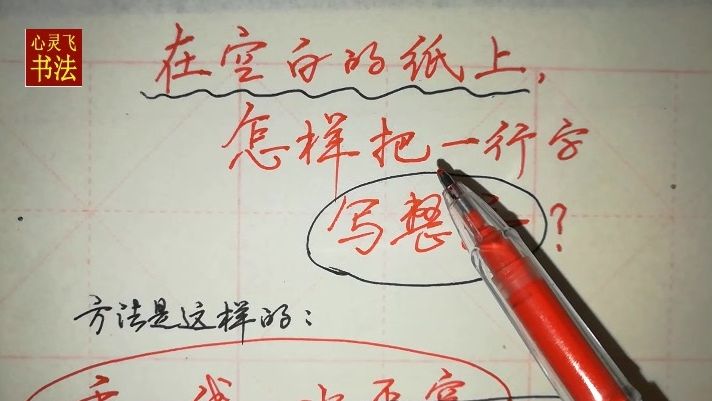 心灵飞
书法
在空白的纸上,
怎样把一行字
写整一?
方法是这样的: